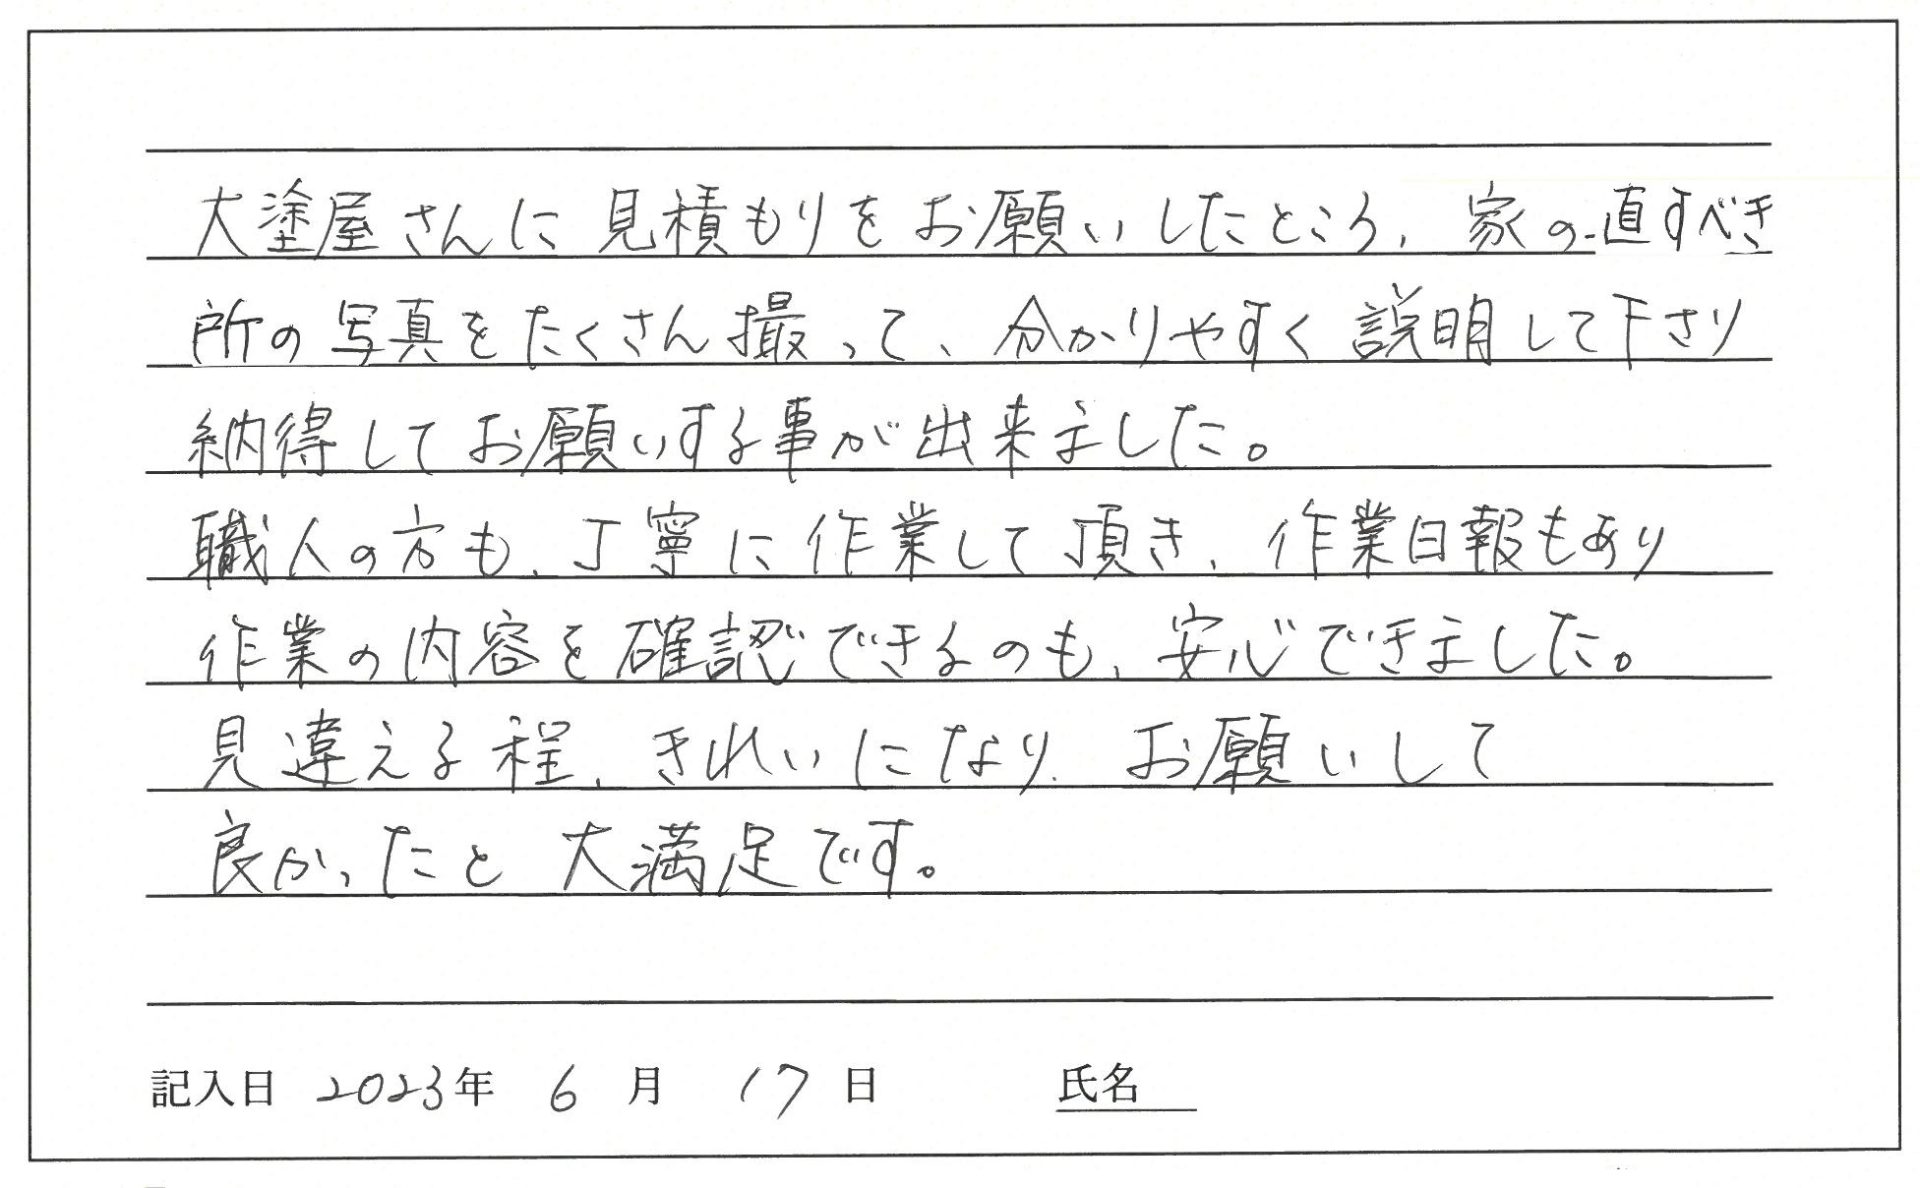 大塗屋さんに見積もりをお願いしたところ、家の直すべき
所の写真をたくさん撮って、分かりやすく説明して下さり
納得してお願いする事が出来ました。
職人の方も、丁寧に作業して頂き、作業日報もあり
作業の内容を確認できるのも、安心できました。
見違える程、きれいになり、お願いして
良かったと大満足です。
記入日 2023年 6月 17日 氏名